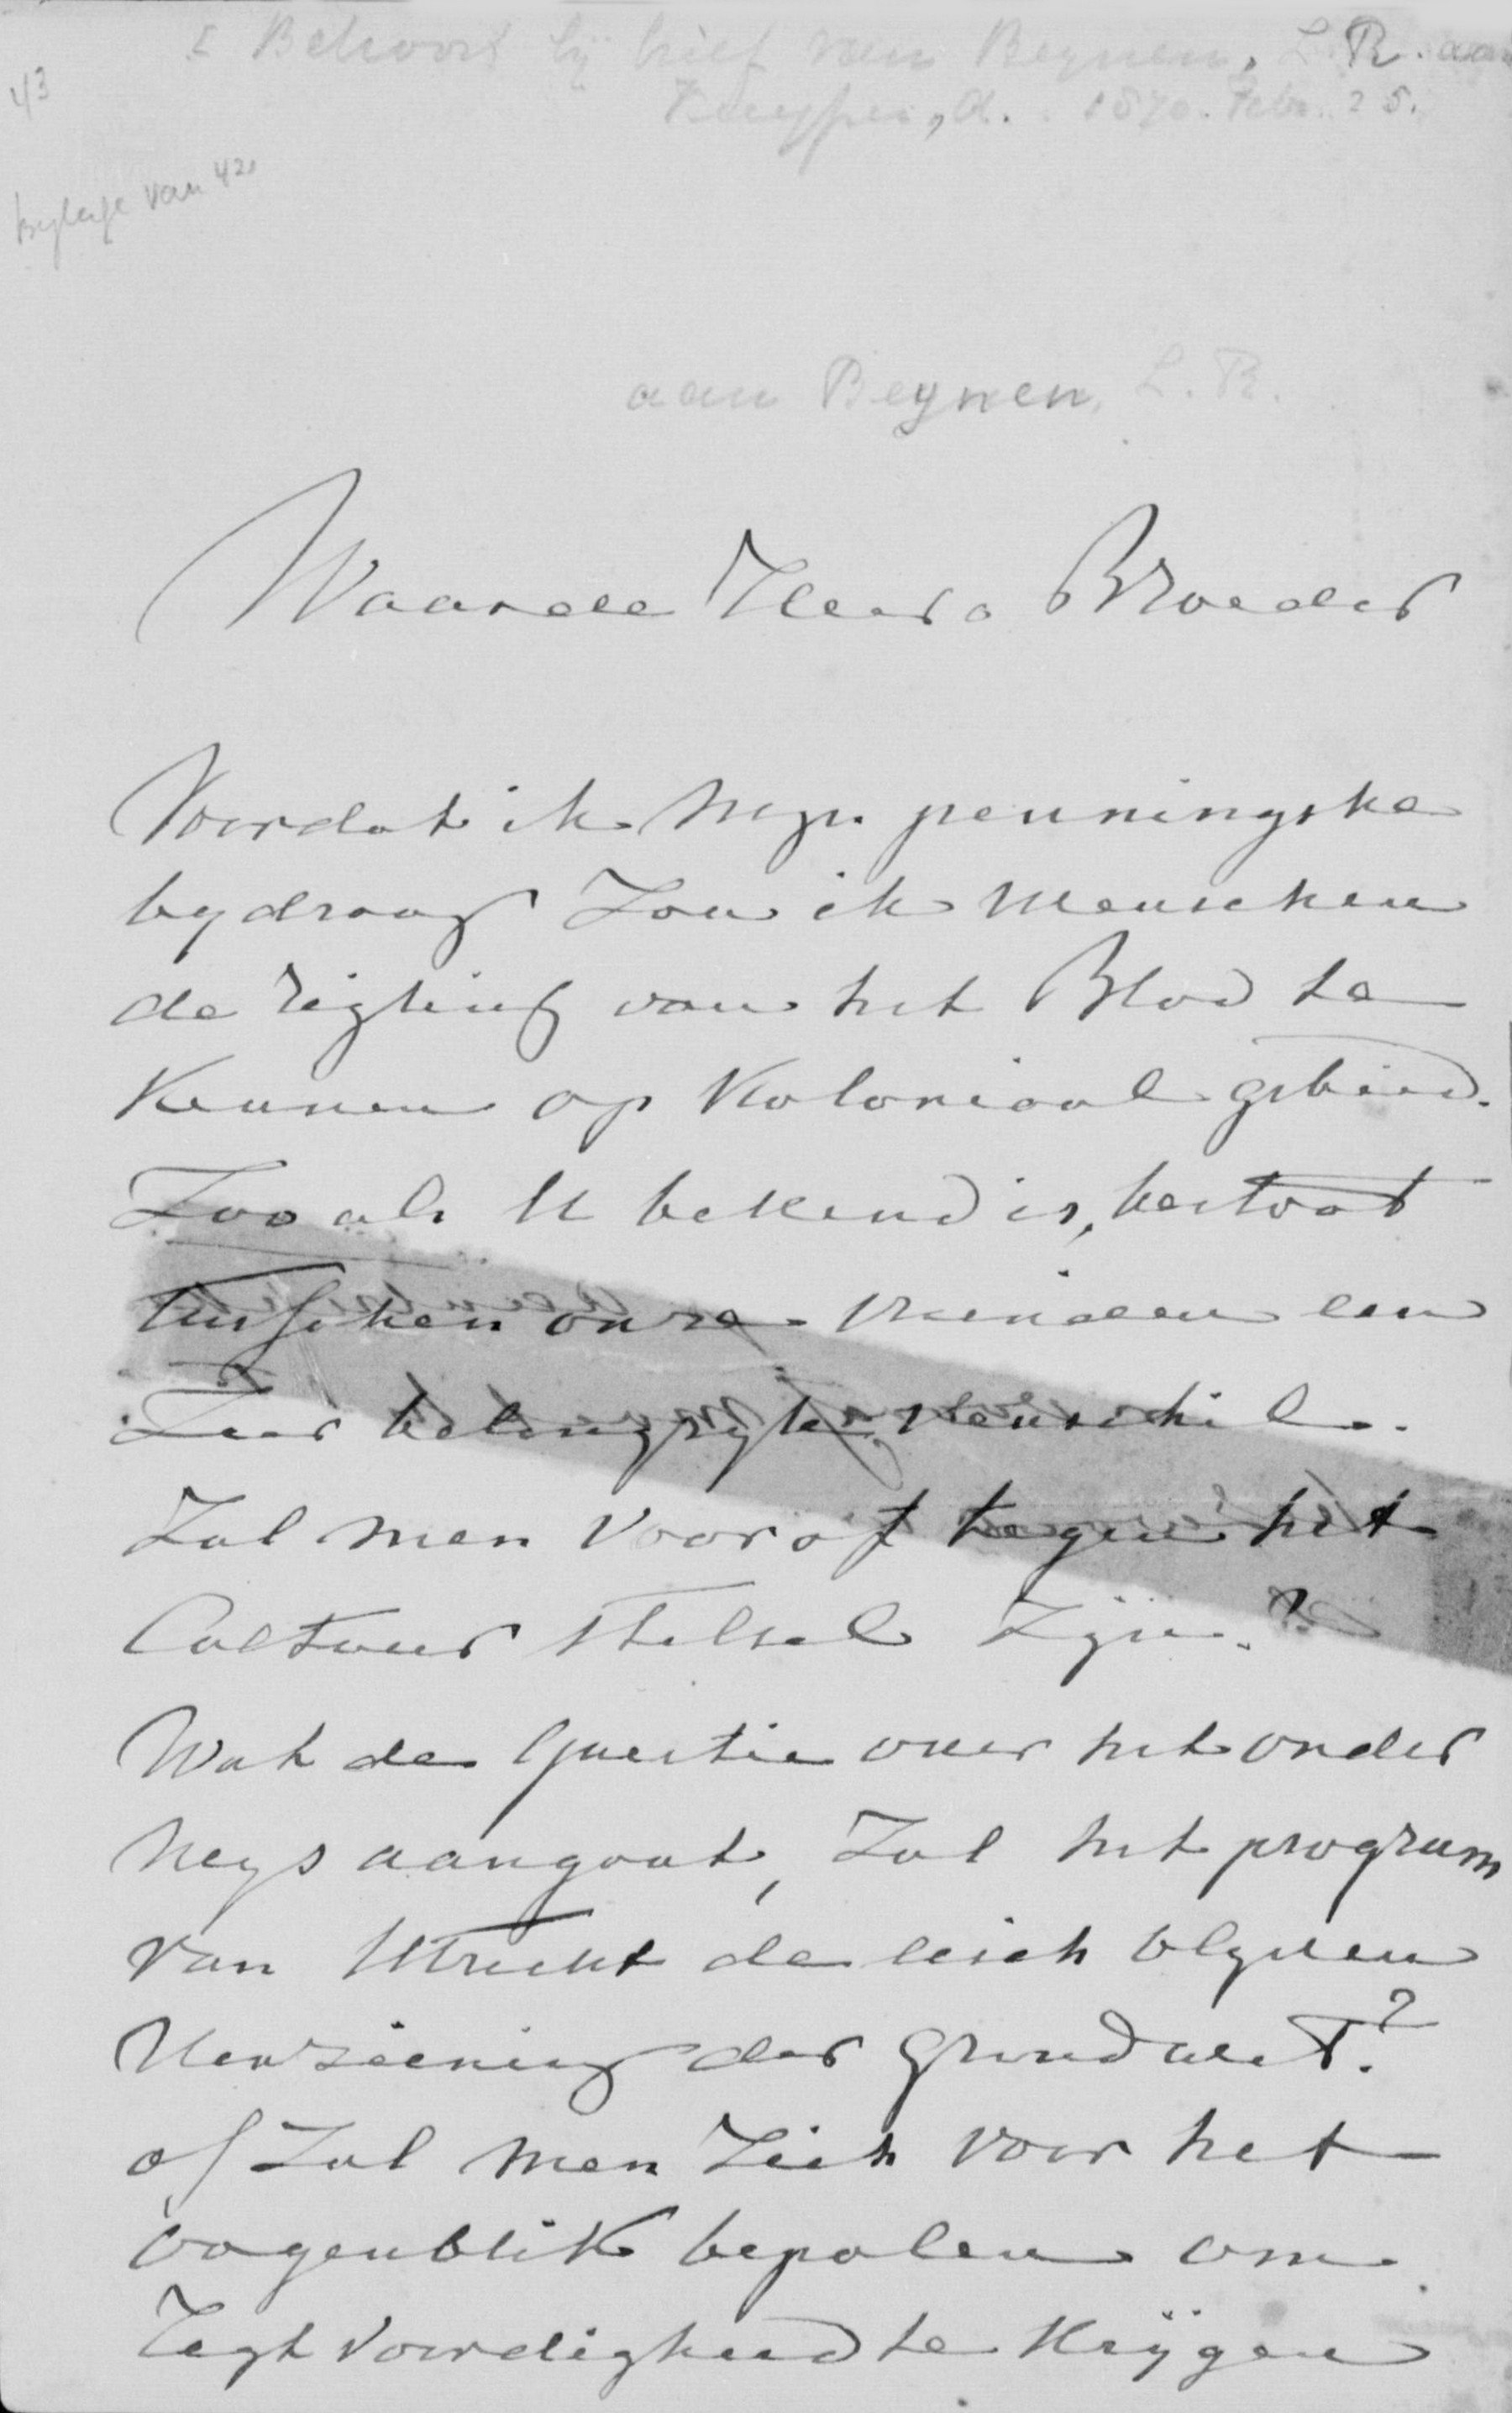 Behoort bij brief van Beynen, L. R. aan
Kuyper, A. 1870. Febr. 25.
43
bijlage van 42a
aan Beynen, L. R.
Waarde Heer & Broeder
Voordat ik myn penningske
bydraag Zou ik wenschen
de rigting van het Blad te
kennen op Koloniaal gebied.
Zoo als U bekend is, bestaat
tusschen onze vrienden een
Zeer belangryke verschil.
Zal men voor of tegen het
Cultuur stelsel Zijn?
Wat de Questie over het onder
wys aangaat, Zal het program
van Utrecht de eisch blyven
Herziening der grondwet?
of Zal men Zich voor het
oogenblik bepalen om
Regtvaardigheid te Krijgen